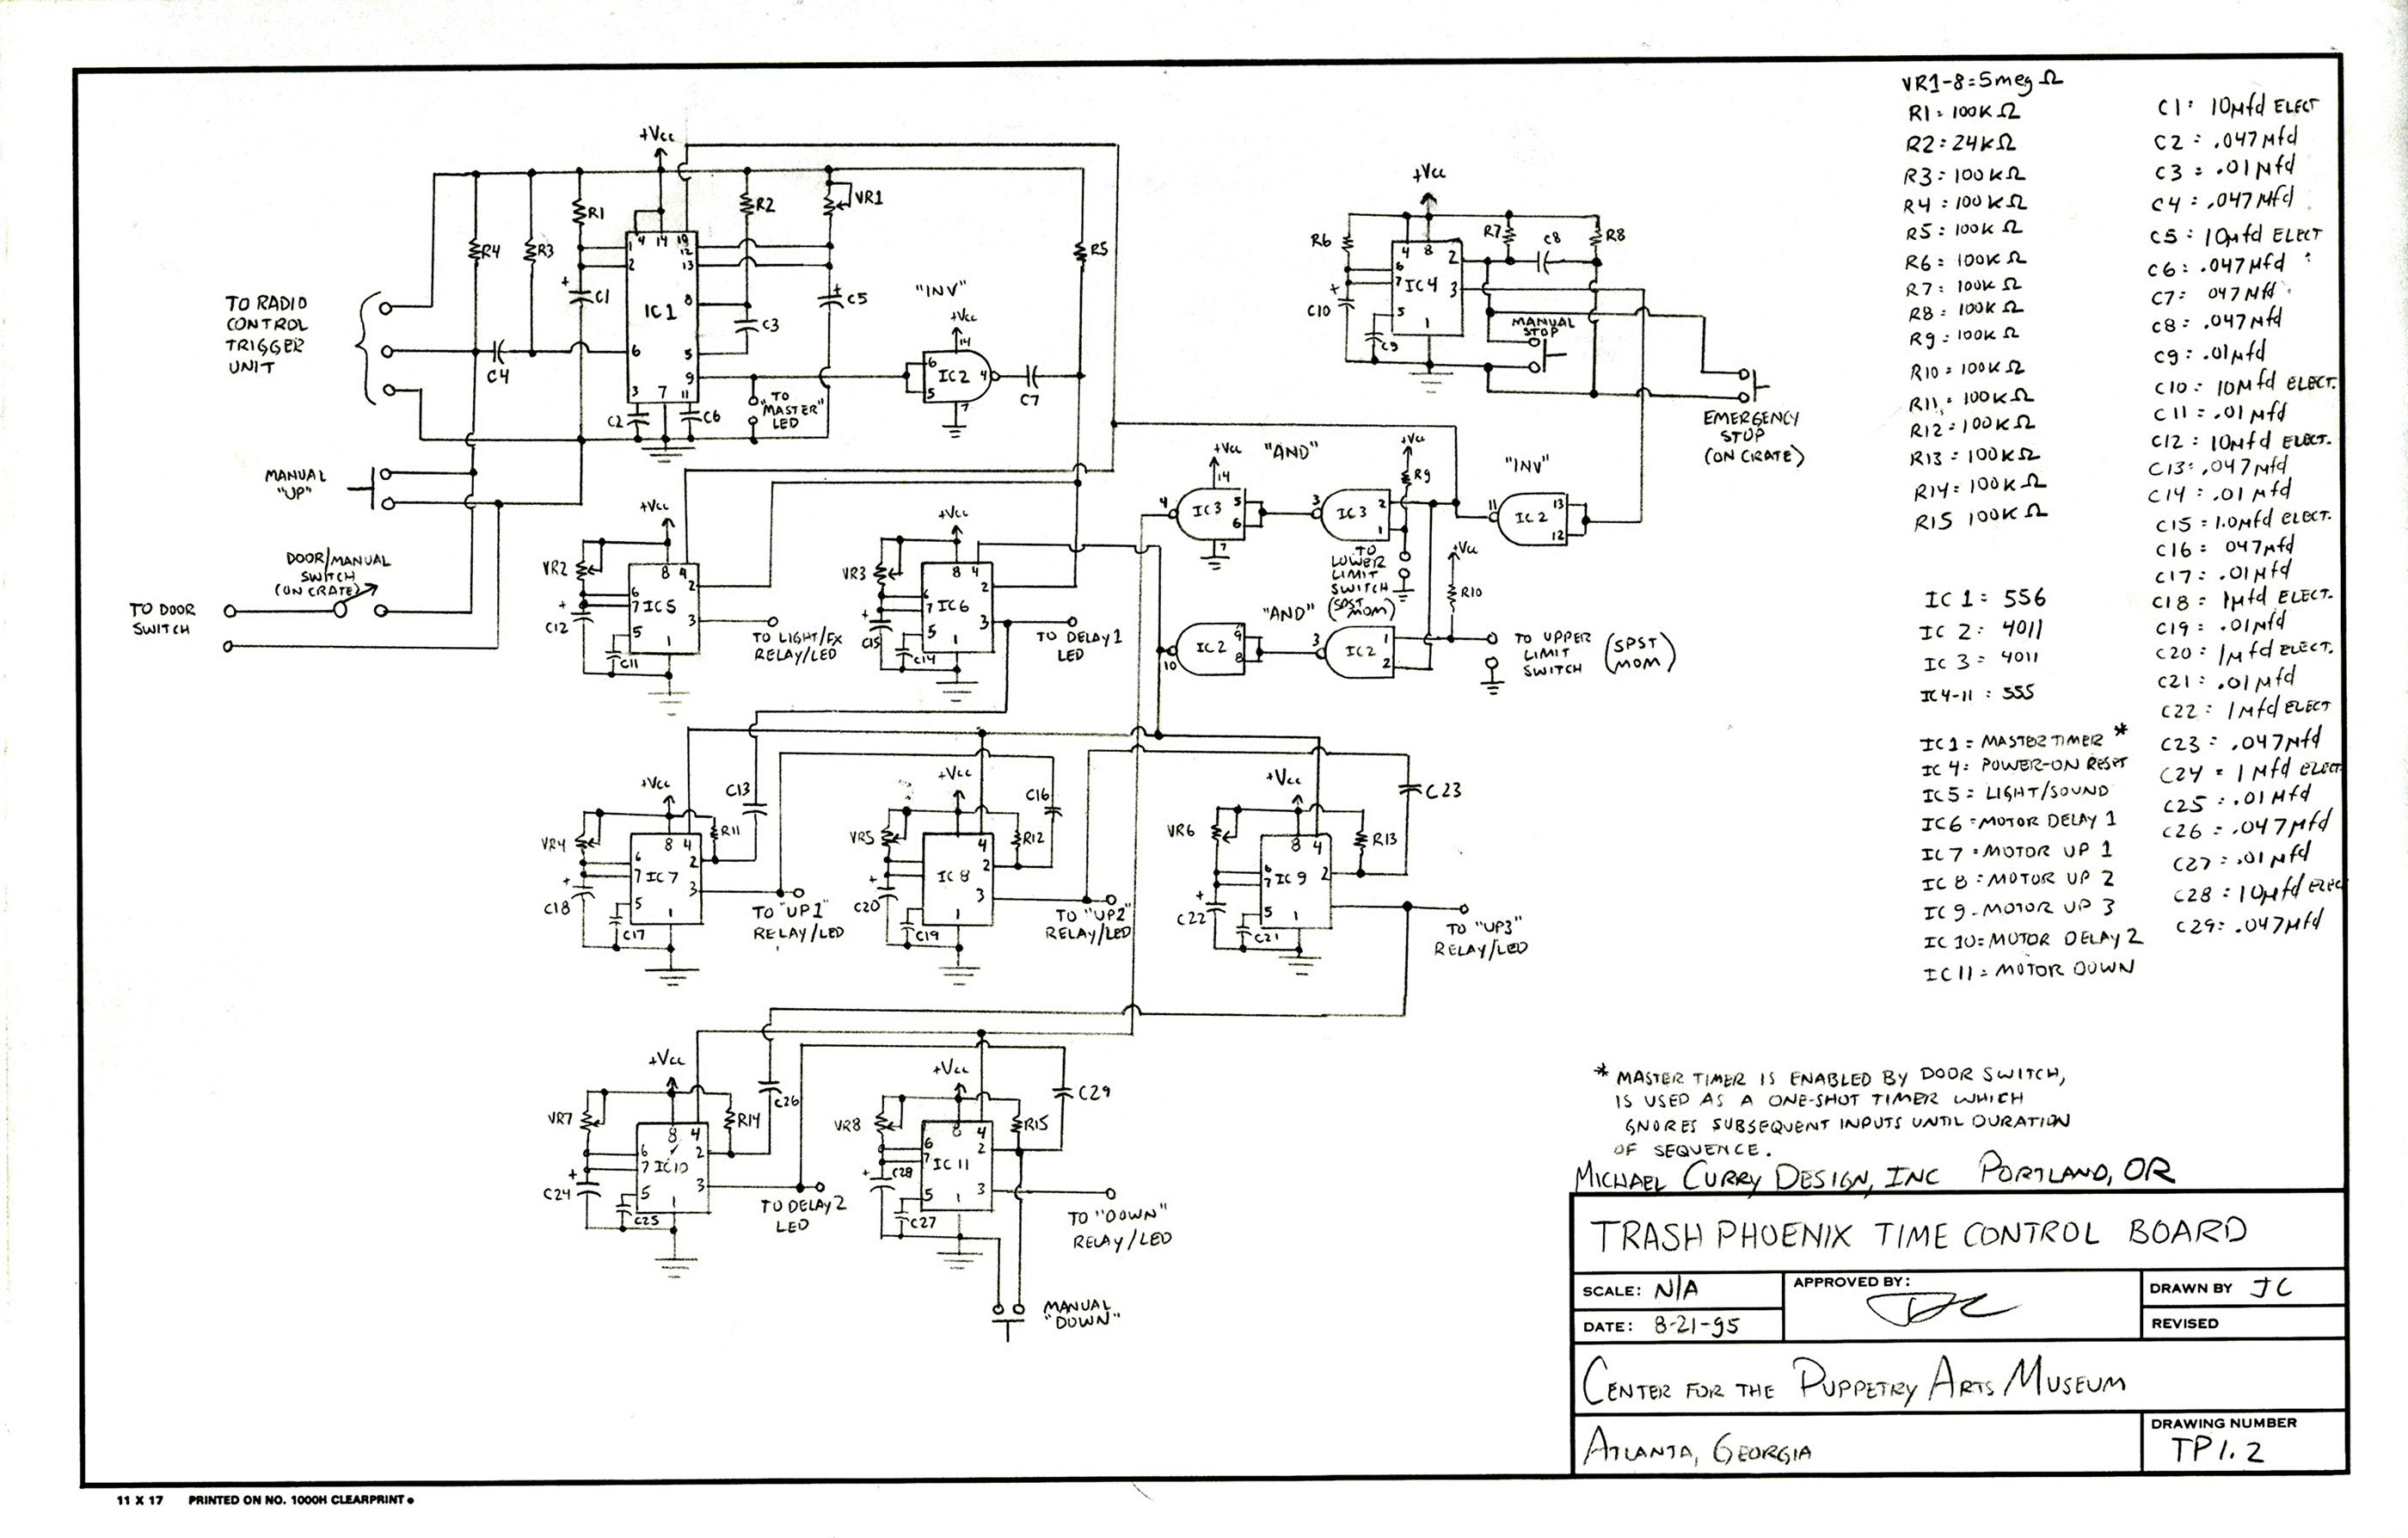 +Vcc
R4
R3
R1
R2
VR1
R5
4 14 10
1
2
12
13
8
5
9
6
3 7 11
IC1
+
C1
C2
C6
C3
+
C5
C4
TO RADIO
CONTROL
TRIGGER
UNIT
"TO
MASTER"
LED
"INV"
+Vcc
14
6
5
IC2
4
7
C7
MANUAL
"UP"
DOOR/MANUAL
SWITCH
(ON CRATE)
TO DOOR
SWITCH
+Vcc
R6
R7
C8
R8
4 8 2
6
7
IC4
3
5
1
+
C10
C9
MANUAL
STOP
EMERGENCY
STOP
(ON CRATE)
+Vcc
"AND"
14
4
IC3
5
6
7
3
IC3
2
1
+Vcc
R9
"INV"
11
IC2
13
12
TO
LOWER
LIMIT
SWITCH
(SPST
MOM)
+Vcc
R10
"AND"
10
IC2
9
8
3
IC2
1
2
TO UPPER
LIMIT
SWITCH
(SPST
MOM)
+Vcc
VR2
8 4
6
7
IC5
2
3
5
1
+
C12
C11
TO LIGHT/FX
RELAY/LED
+Vcc
VR3
8 4
6
7
IC6
2
3
5
1
+
C15
C14
TO DELAY 1
LED
+Vcc
VR4
R11
C13
8 4
6
7
IC7
2
3
5
1
+
C18
C17
TO "UP1"
RELAY/LED
+Vcc
VR5
R12
C16
IC8
2
3
5
1
+
C20
C19
TO "UP2"
RELAY/LED
+Vcc
VR6
R13
C23
8 4
6
7
IC9
2
5
1
+
C22
C21
TO "UP3"
RELAY/LED
+Vcc
VR7
R14
C26
8 4
6
7
IC10
2
3
5
1
+
C24
C25
TO DELAY 2
LED
+Vcc
VR8
R15
C29
8 4
6
7
IC11
2
3
5
1
+
C28
C27
TO "DOWN"
RELAY/LED
MANUAL
"DOWN"
VR1-8 = 5meg Ω
R1 = 100K Ω
R2: 24K Ω
R3 = 100K Ω
R4 = 100K Ω
R5 = 100K Ω
R6 = 100K Ω
R7 = 100K Ω
R8 = 100K Ω
R9 = 100K Ω
R10 = 100K Ω
R11 = 100K Ω
R12 = 100K Ω
R13 = 100K Ω
R14 = 100K Ω
R15 100K Ω
C1: 10Mfd ELECT
C2 = .047Mfd
C3 = .01Mfd
C4 = .047Mfd
C5 : 10Mfd ELECT
C6 : .047Mfd
C7: 047Mfd
C8: .047Mfd
C9: .01Mfd
C10: 10Mfd ELECT.
C11 = .01Mfd
C12: 10Mfd ELECT.
C13: .047Mfd
C14 : .01Mfd
C15 = 1.0Mfd ELECT.
C16 = 047Mfd
C17: .01Mfd
C18 : 1Mfd ELECT.
C19: .01Mfd
C20: 1Mfd ELECT.
C21: .01Mfd
C22: 1Mfd ELECT
C23: .047Mfd
C24 = 1Mfd ELECT
C25: .01Mfd
C26 = .047Mfd
C27: .01Mfd
C28 = 10Mfd ELECT
C29: .047Mfd
IC 1: 556
IC 2: 4011
IC 3 = 4011
IC4-11 : 555
IC1 = MASTER TIMER *
IC 4: POWER-ON RESET
IC5 = LIGHT/SOUND
IC6 = MOTOR DELAY 1
IC 7 = MOTOR UP 1
IC 8 = MOTOR UP 2
IC 9 - MOTOR UP 3
IC 10= MOTOR DELAY 2
IC 11 = MOTOR DOWN
* MASTER TIMER IS ENABLED BY DOOR SWITCH,
IS USED AS A ONE-SHOT TIMER WHICH
GNORES SUBSEQUENT INPUTS UNTIL DURATION
OF SEQUENCE.
MICHAEL CURRY DESIGN, INC PORTLAND, OR
TRASH PHOENIX TIME CONTROL BOARD
SCALE: N/A
APPROVED BY:
DRAWN BY JC
DATE: 8-21-95
REVISED
CENTER FOR THE PUPPETRY ARTS MUSEUM
ATLANTA, GEORGIA
DRAWING NUMBER
TP1.2
11 X 17 PRINTED ON NO. 1000H CLEARPRINT